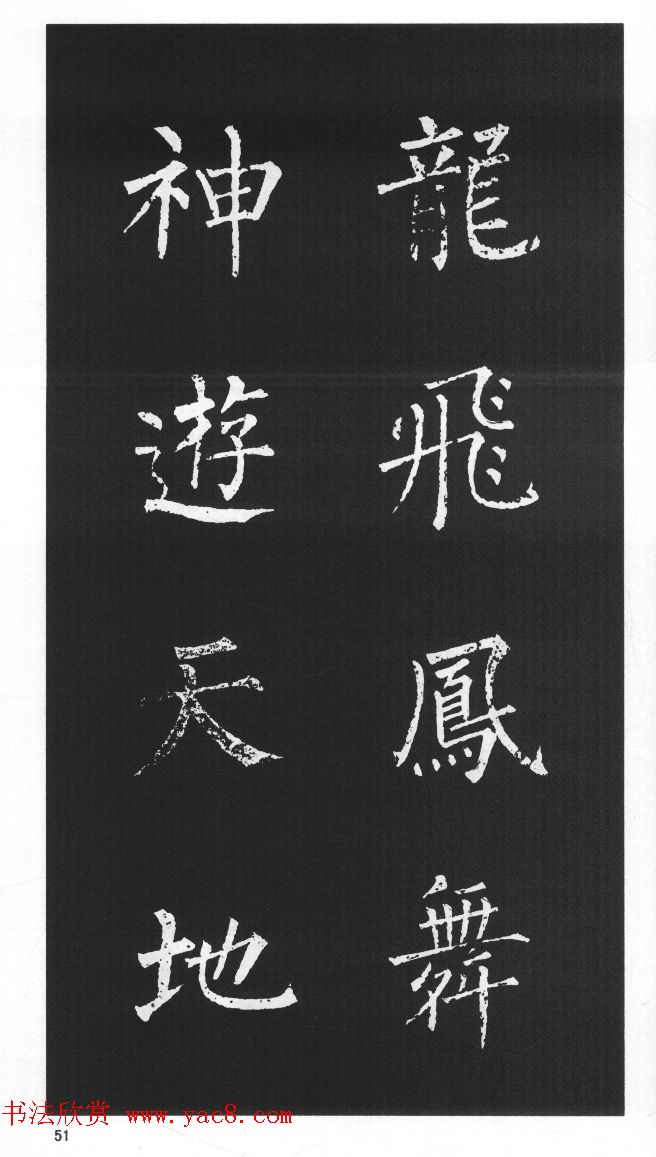 龍飛鳳舞
神遊天地
书法欣赏 www.yac8.com
51